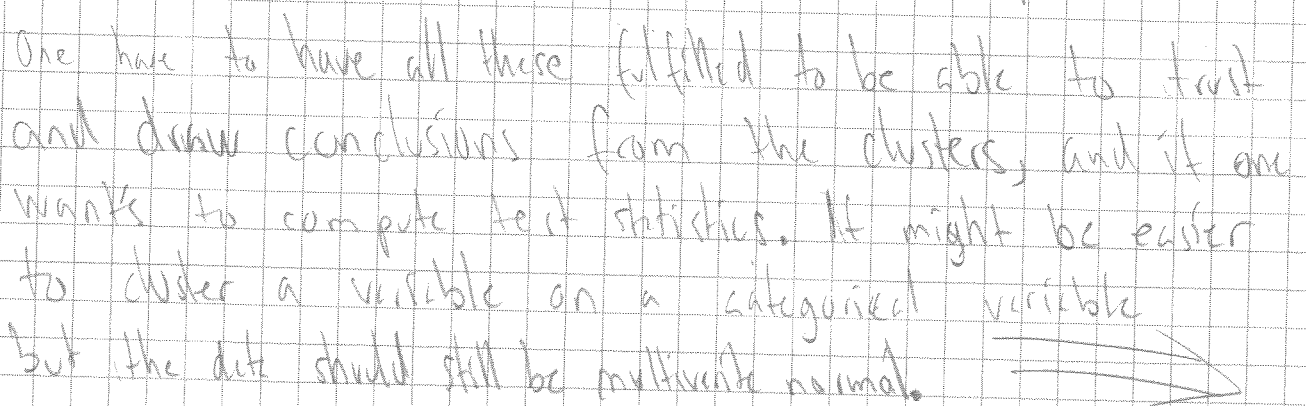 One have to have all these fulfilled to be able to trust
and draw conclusions from the clusters, and if one
want's to compute test statistics. It might be easier
to cluster a variable on a categorical variable
but the data should still be multivariate normal.